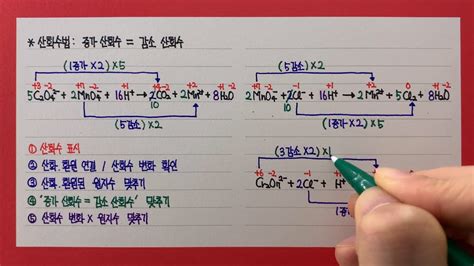 * 산화수법: 증가 산화수 = 감소 산화수
(1증가×2)×5
+3 -2 +7 -2 +1 +4 -2 +2 +1 -2
5C₂O₄²⁻ + 2MnO₄⁻ + 16H⁺ → 10CO₂ + 2Mn²⁺ + 8H₂O
(5감소)×2
(5감소)×2
+7 -2 -1 +1 +2 0 +1 -2
2MnO₄⁻ + 10Cl⁻ + 16H⁺ → 2Mn²⁺ + 5Cl₂ + 8H₂O
(1증가×2)×5
① 산화수 표시
② 산화·환원 연결 / 산화수 변화 확인
③ 산화·환원된 원자수 맞추기
④ "증가 산화수 = 감소 산화수" 맞추기
⑤ 산화수 변화 × 원자수 맞추기
(3감소×2)×1
+6 -2 -1
Cr₂O₇²⁻ + 2Cl⁻ + H⁺